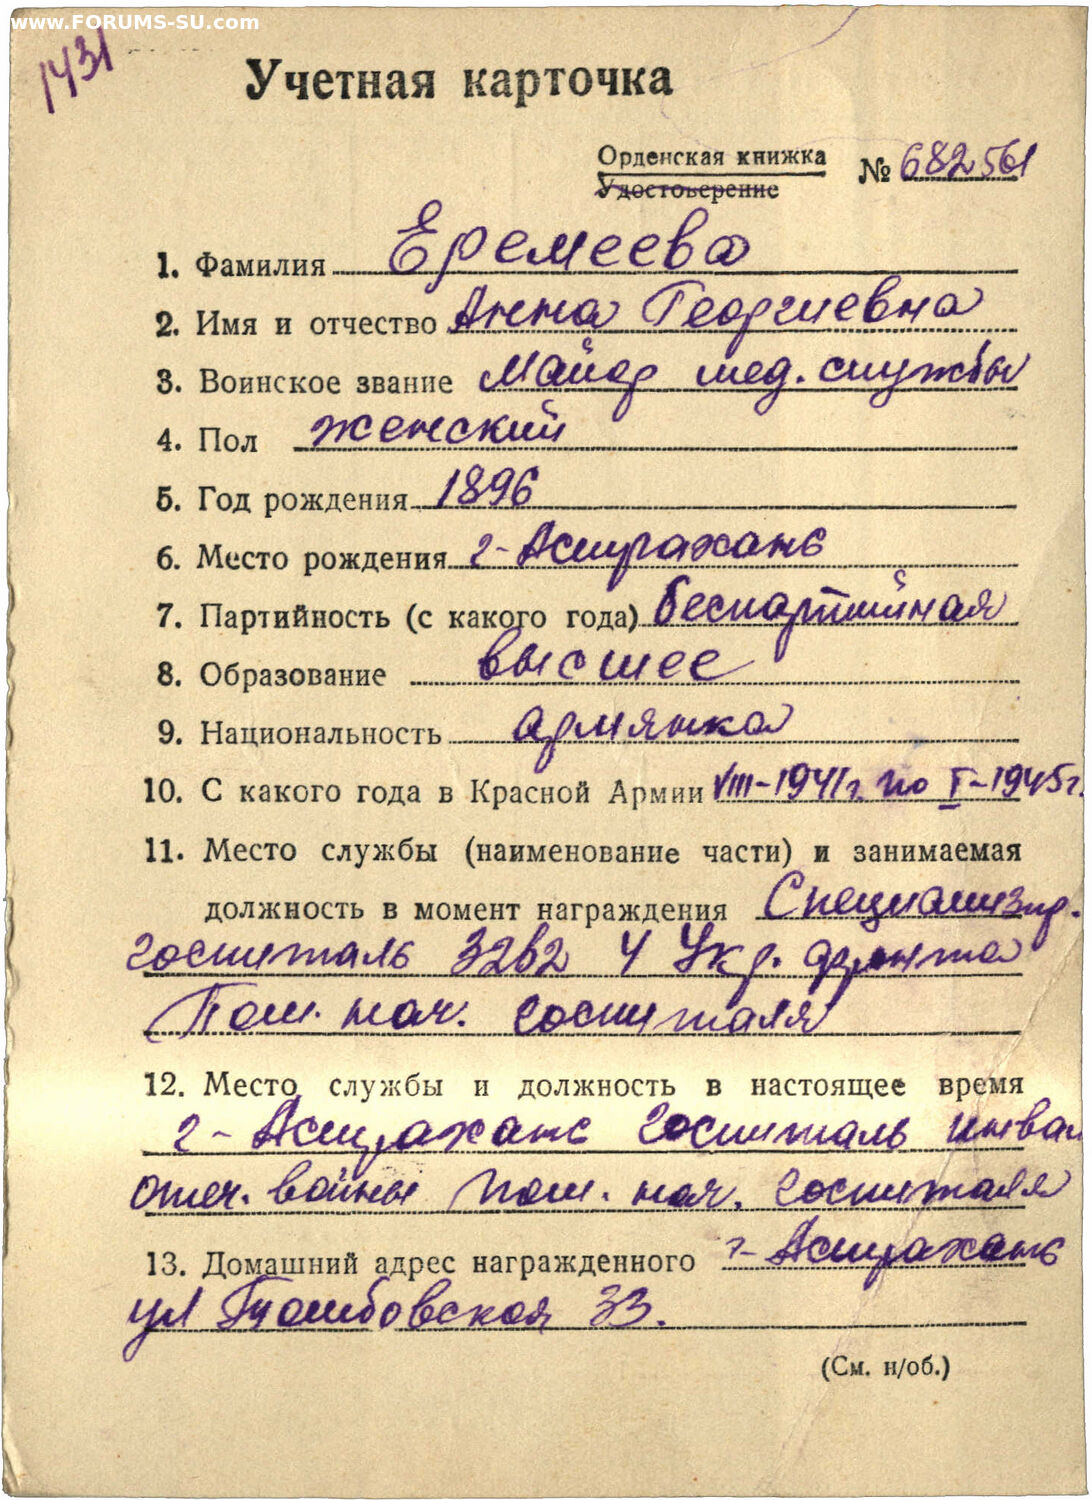 www.FORUMS-SU.com
1431
Учетная карточка
Орденская книжка № 682561
Удостоверение
1. Фамилия Еремеева
2. Имя и отчество Анна Георгиевна
3. Воинское звание Майор мед. службы
4. Пол женский
5. Год рождения 1896
6. Место рождения г-Астрахань
7. Партийность (с какого года) беспартийная
8. Образование высшее
9. Национальность армянка
10. С какого года в Красной Армии VIII-1941г. по X-1945г.
11. Место службы (наименование части) и занимаемая
должность в момент награждения Специализир.
госпиталь 3282 4 Укр. фронта
Пом. нач. госпиталя
12. Место службы и должность в настоящее время
г-Астрахань госпиталь инвал
отеч. войны Пом. нач. госпиталя
13. Домашний адрес награжденного г-Астрахань
ул Тамбовская 33.
(См. н/об.)